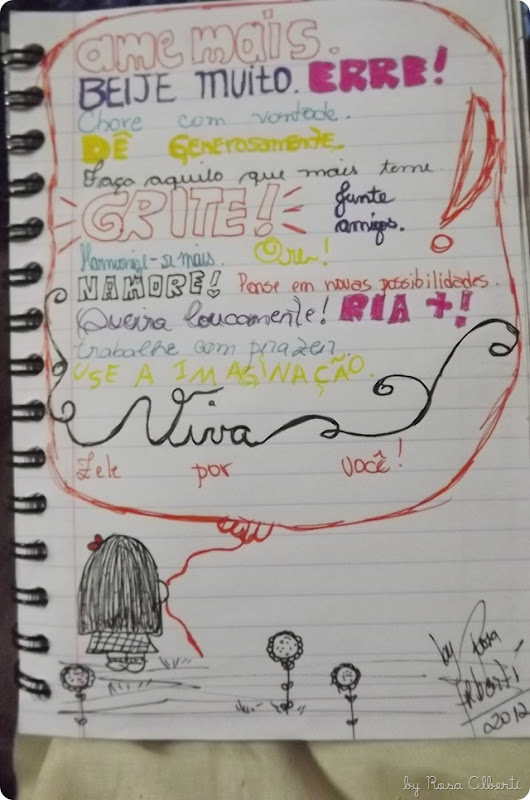 ame mais.
BEIJE MUITO. ERRE!
Chore com vontade.
DÊ Generosamente.
Faça aquilo que mais teme
GRITE! Junte
amigos.
Harmonize-se mais. Ore!
NAMORE! Pense em novas possibilidades.
Queira loucamente! RIA +!
trabalhe com prazer
USE A IMAGINAÇÃO.
Viva
Zele por você!
by Rosa
2012
by Rosa Cilberti